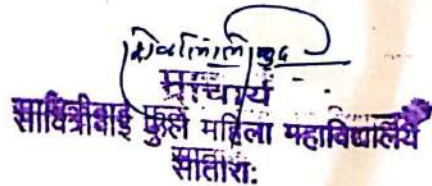 प्राचार्य
सावित्रीबाई फुले महिला महाविद्यालय
सातारा: